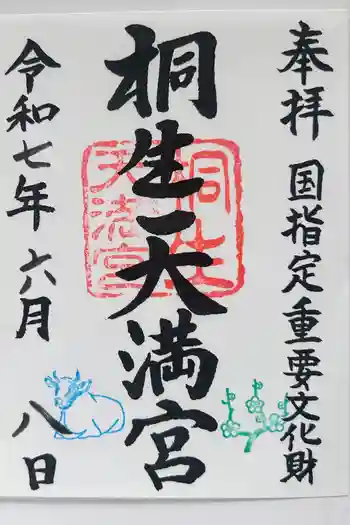 奉拝
国指定重要文化財
桐生天満宮
桐生
天満宮
令和七年六月
八日